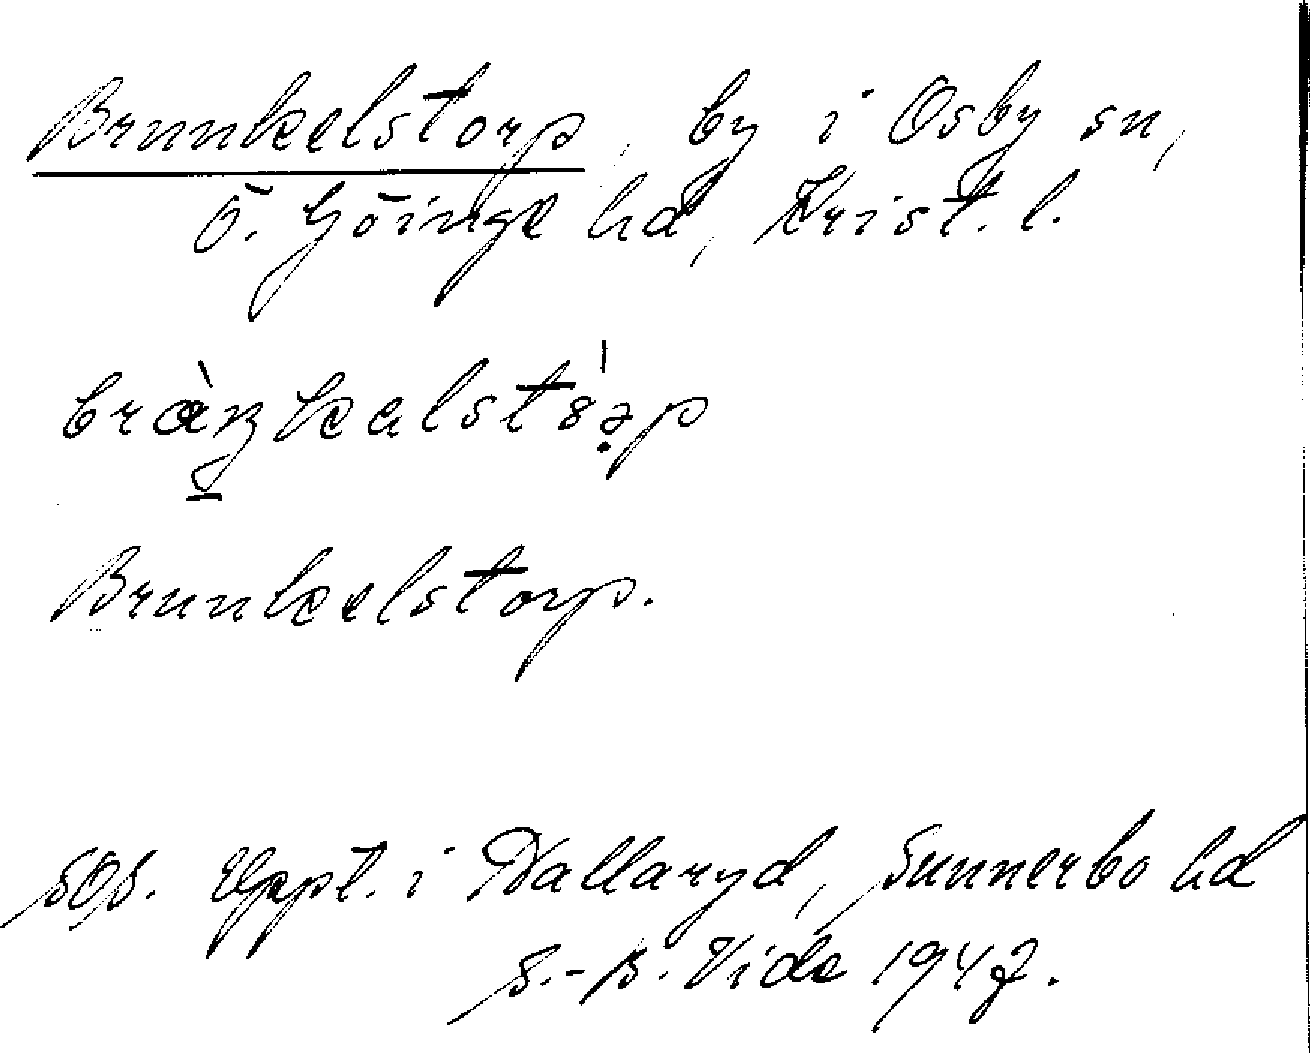 Brunkelstorp, by i Osby sn,
Ö. Göinge hd, Krist. l.
Brunkelstorp.
SOS. Uppt. i Hallaryd, Sunnerbo hd
S.-B. Vide 1947.